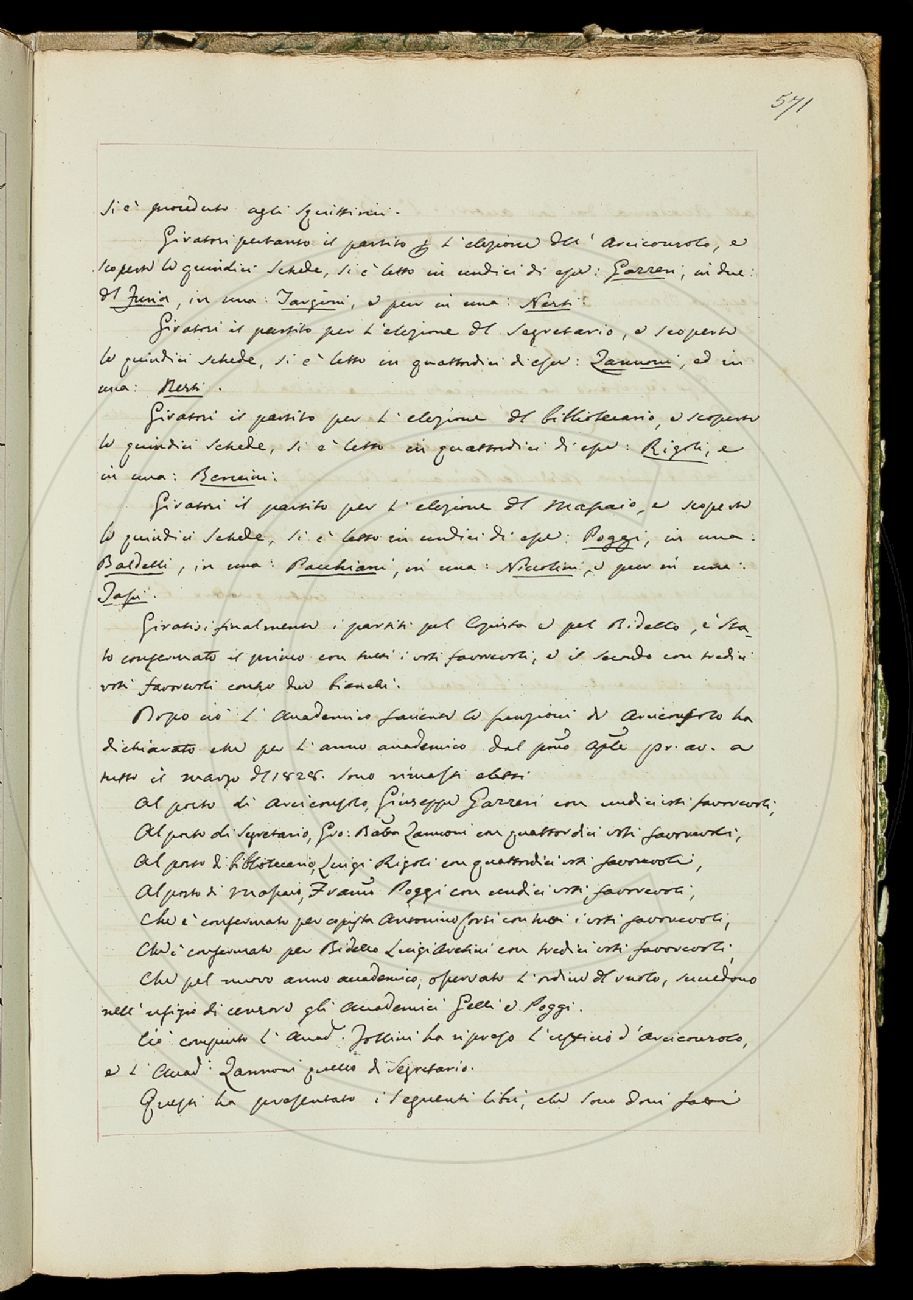 571
si è proceduto agli Squittini.
Giratosi pertanto il partito p l'elezione dell'Arciconsolo, e
scoperte le quindici schede, si è letto in undici di esse: Gazzeri, in due:
del Furia, in una: Targioni, e pur in una: Nesti
Giratosi il partito per l'elezione del Segretario, e scoperte
le quindici schede, si è letto in quattordici di esse: Zannoni, ed in
una: Nesti.
Giratosi il partito per l'elezione del bibliotecario, e scoperte
le quindici schede, si è letto in quattordici di esse: Rigoli, e
in una: Bencini.
Giratosi il partito per l'elezione del Massaio, e scoperte
le quindici schede, si è letto in undici di esse: Poggi, in una:
Baldelli, in una: Pacchiani, in una: Niccolini, e pur in una:
Tassi.
Giratisi finalmente i partiti pel Copista e pel Bidello, è sta-
to confermato il primo con tutti i voti favorevoli, e il secondo con tredici
voti favorevoli contro due bianchi.
Dopo ciò l'Accademico facente le funzioni di Arciconsolo ha
dichiarato che per l'anno accademico dal pmo Aple pr. av. a
tutto il marzo del 1828. sono rimasti eletti
Al posto di Arciconsolo, Giuseppe Gazzeri con undici voti favorevoli;
Al posto di Segretario, Gio: Batta Zannoni con quattordici voti favorevoli;
Al posto di bibliotecario, Luigi Rigoli con quattordici voti favorevoli;
Al posto di Massaio, Franco Poggi con undici voti favorevoli;
Che è confermato per copista Antonino Corsi con tutti i voti favorevoli;
Che è confermato per Bidello Luigi con tredici voti favorevoli;
Che pel nuovo anno accademico, osservato l'ordine del ruolo, succedono
nell'ufizio di censore gli Accademici Gelli e Poggi.
Ciò compiuto l'Accad. Follini ha ripreso l'uffizio d'Arciconsolo,
e l'Accad. Zannoni quello di Segretario.
Questi ha presentato i seguenti libri, che sono doni fatti